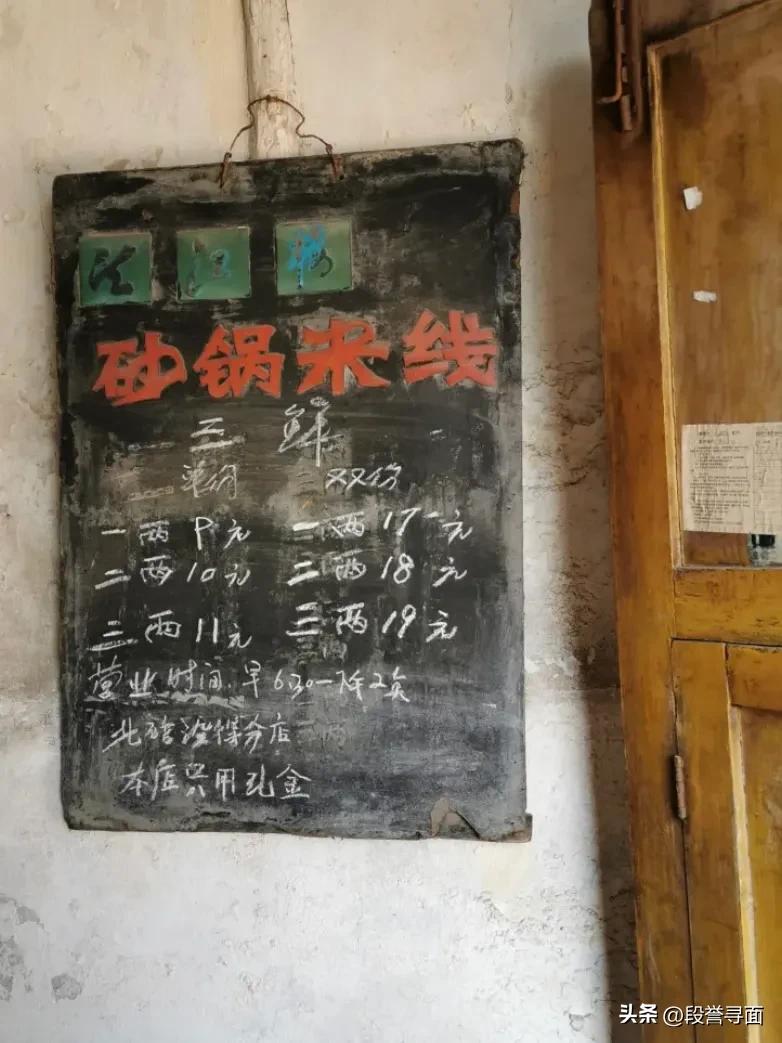 江
砂锅米线
三鲜
单份 双份
一两9元 一两17元
二两10元 二两18元
三两11元 三两19元
营业时间.早630一下午2点
北碚没得分店
本店只用现金
头条 @段誉寻面